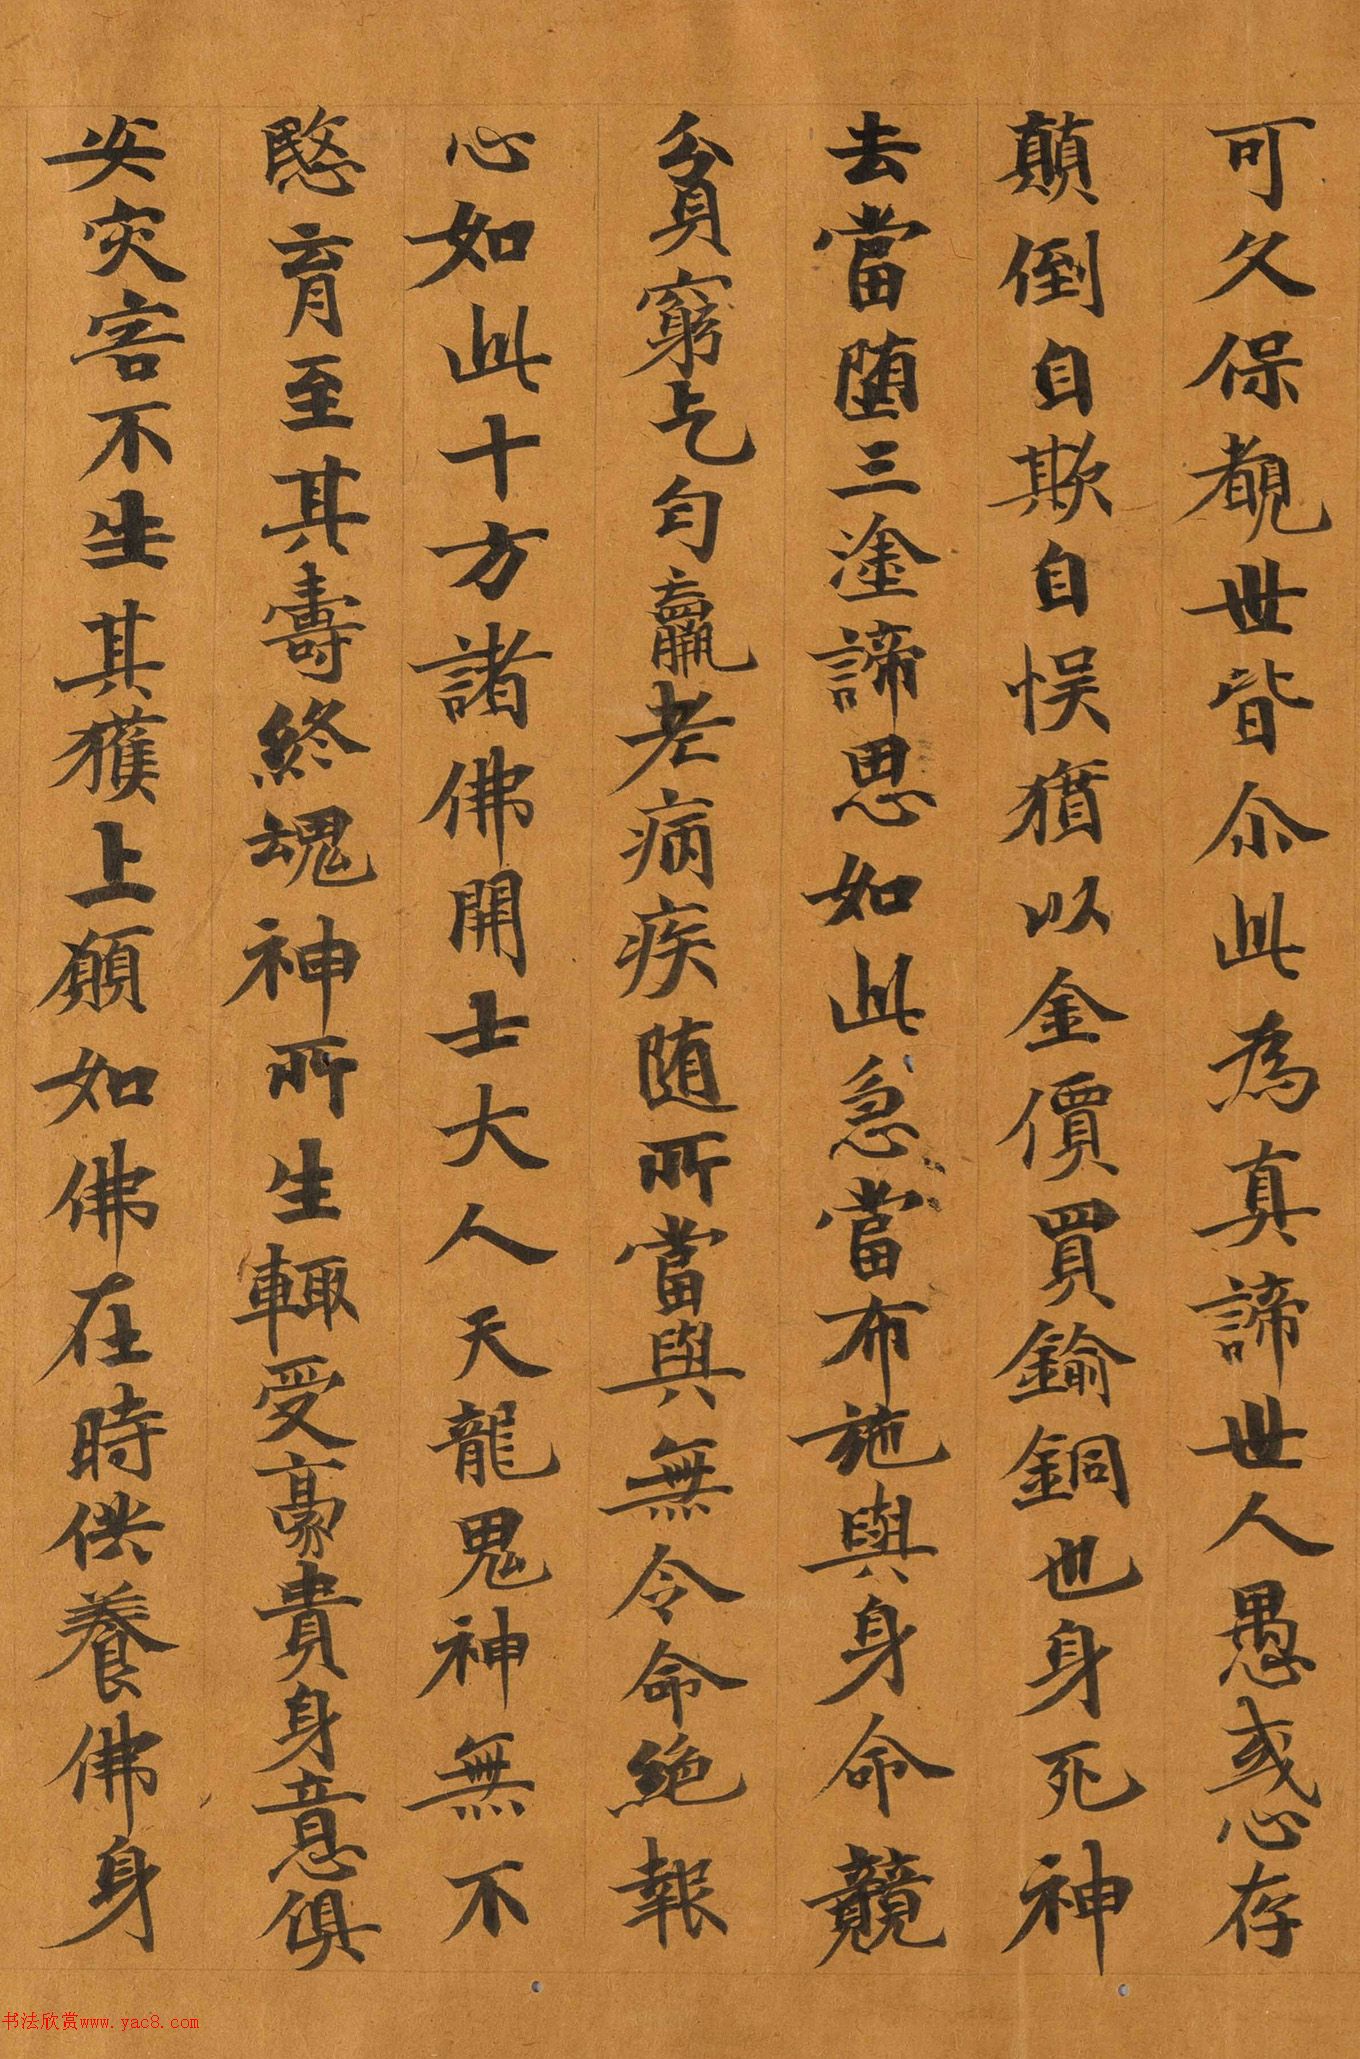 可久保覩世皆尒此為真諦世人愚惑心存
顛倒自欺自悞猶以金價買鍮銅也身死神
去當堕三塗諦思如此急當布施與身命競
貧窮乞匃羸老病疾随所當與無令命絶報
心如此十方諸佛開士大人天龍鬼神無不
愍育至其壽終魂神所生輙受豪貴身意俱
安灾害不生其獲上願如佛在時供養佛身
书法欣赏www.yac8.com